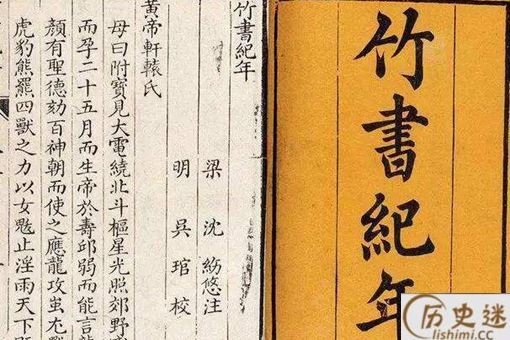 竹書紀年
竹書紀年
梁 沈約附注
明 吳琯校
黃帝軒轅氏
母曰附寶見大雷繞北斗樞星光照郊野感
而孕二十五月而生帝於壽邱弱而能言龍
顏有聖德劾百神朝而使之應龍攻蚩尤戰
虎豹熊羆四獸之力以女魃止淫雨天下既
历史迷
lishimi.cc